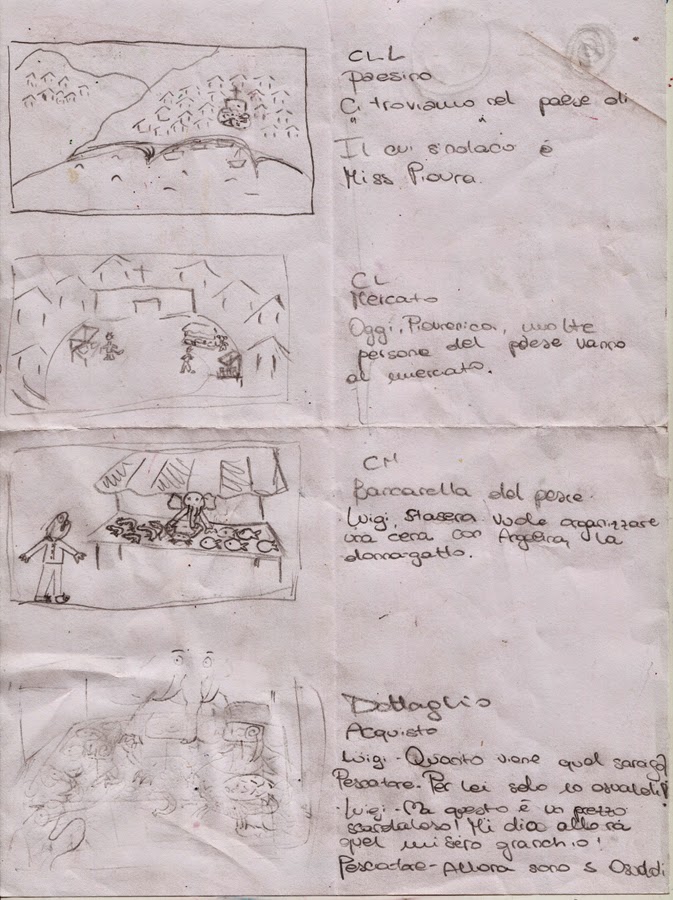 C.L.L
paesino
Ci troviamo nel paese di
" "
Il cui sindaco è
Miss Piovra.
CL
Mercato
Oggi, Domenica, molte
persone del paese vanno
al mercato.
CM
Bancarella del pesce.
Luigi, stasera vuole organizzare
una cena con Angelina, la
donna-gatto.
Dettaglio
Acquisto
Luigi - Quanto viene quel sarago?
Pescatore - Per lei solo 10 osvaldi!
- Luigi - Ma questo è un prezzo
scandaloso! Mi dia allora
quel misero granchio!
Pescatore - Allora sono 5 Osvaldi